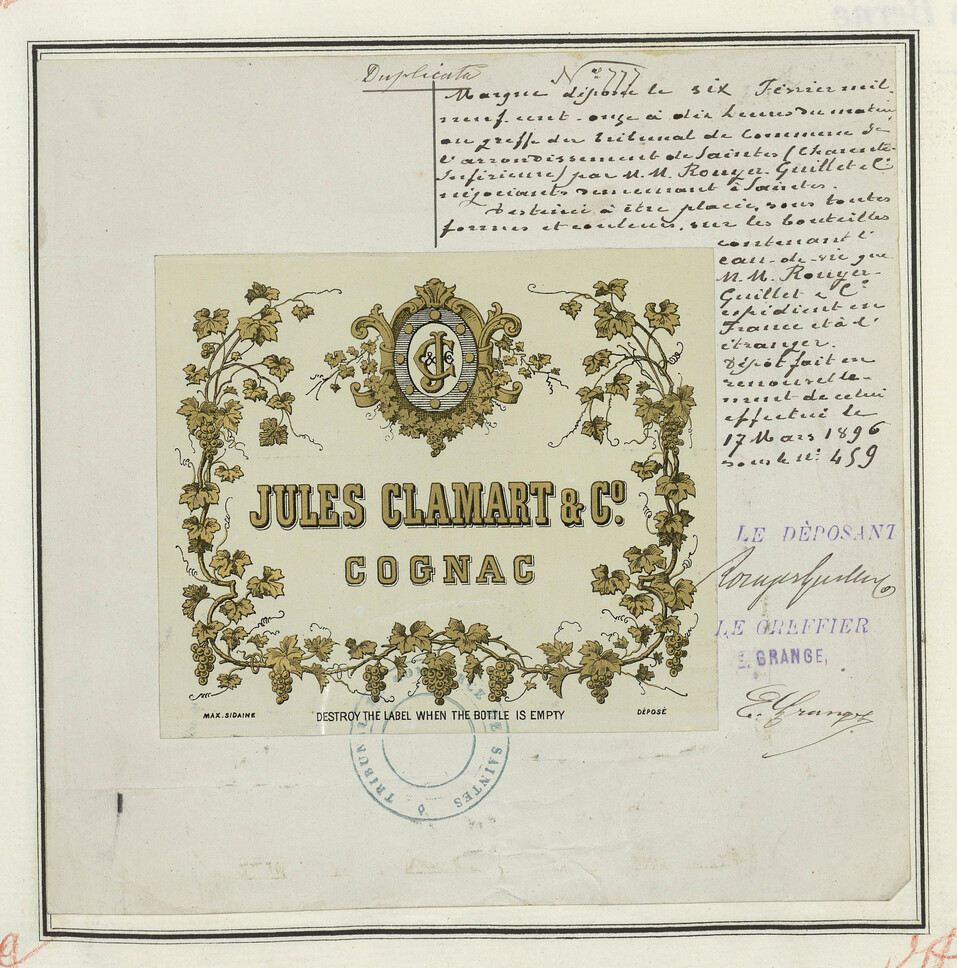 Duplicata
Nº 777
Marque déposée le six Février mil
neuf cent-onze à dix heures du matin
au greffe du Tribunal de Commerce de
l'arrondissement de Saintes (Charente-
Inférieure) par M.M. Rouyer-Guillet & Cº
négociants demeurant à Saintes.
Destinée à être placée, sous toutes
formes et couleurs, sur les bouteilles
contenant l'
eau-de-vie que
M.M. Rouyer-
Guillet & Cº
expédient en
France et à l'
étranger.
Dépôt fait en
renouvelle-
ment de celui
effectué le
17 Mars 1896
sous le nº 459
J C & Cº
JULES CLAMART & Cº.
COGNAC
MAX. SIDAINE
DESTROY THE LABEL WHEN THE BOTTLE IS EMPTY
DÉPOSÉ
LE DÈPOSANT
Rouyer Guillet & Co
LE GREFFIER
E. GRANGE,
E. Grange
TRIBUNAL DE SAINTES